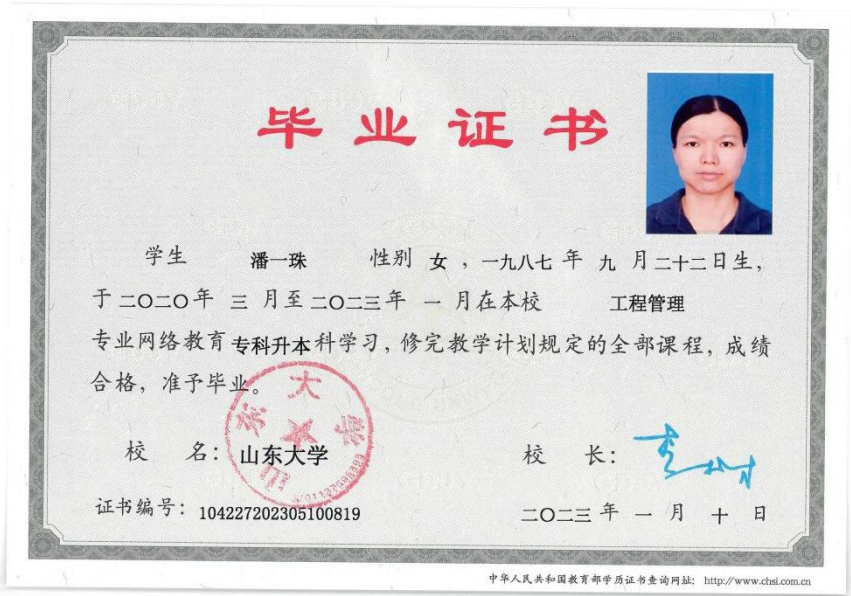 毕业证书
学生 潘一珠 性别 女 ，一九八七 年 九 月二十二日生，
于二〇二〇年 三 月至二〇二三年 一 月在本校 工程管理
专业网络教育专科升本科学习，修完教学计划规定的全部课程，成绩
合格，准予毕业。
山东大学
校 名： 山东大学 校 长：
证书编号： 104227202305100819 二〇二三 年 一 月 十 日
中华人民共和国教育部学历证书查询网址： http://www.chsi.com.cn